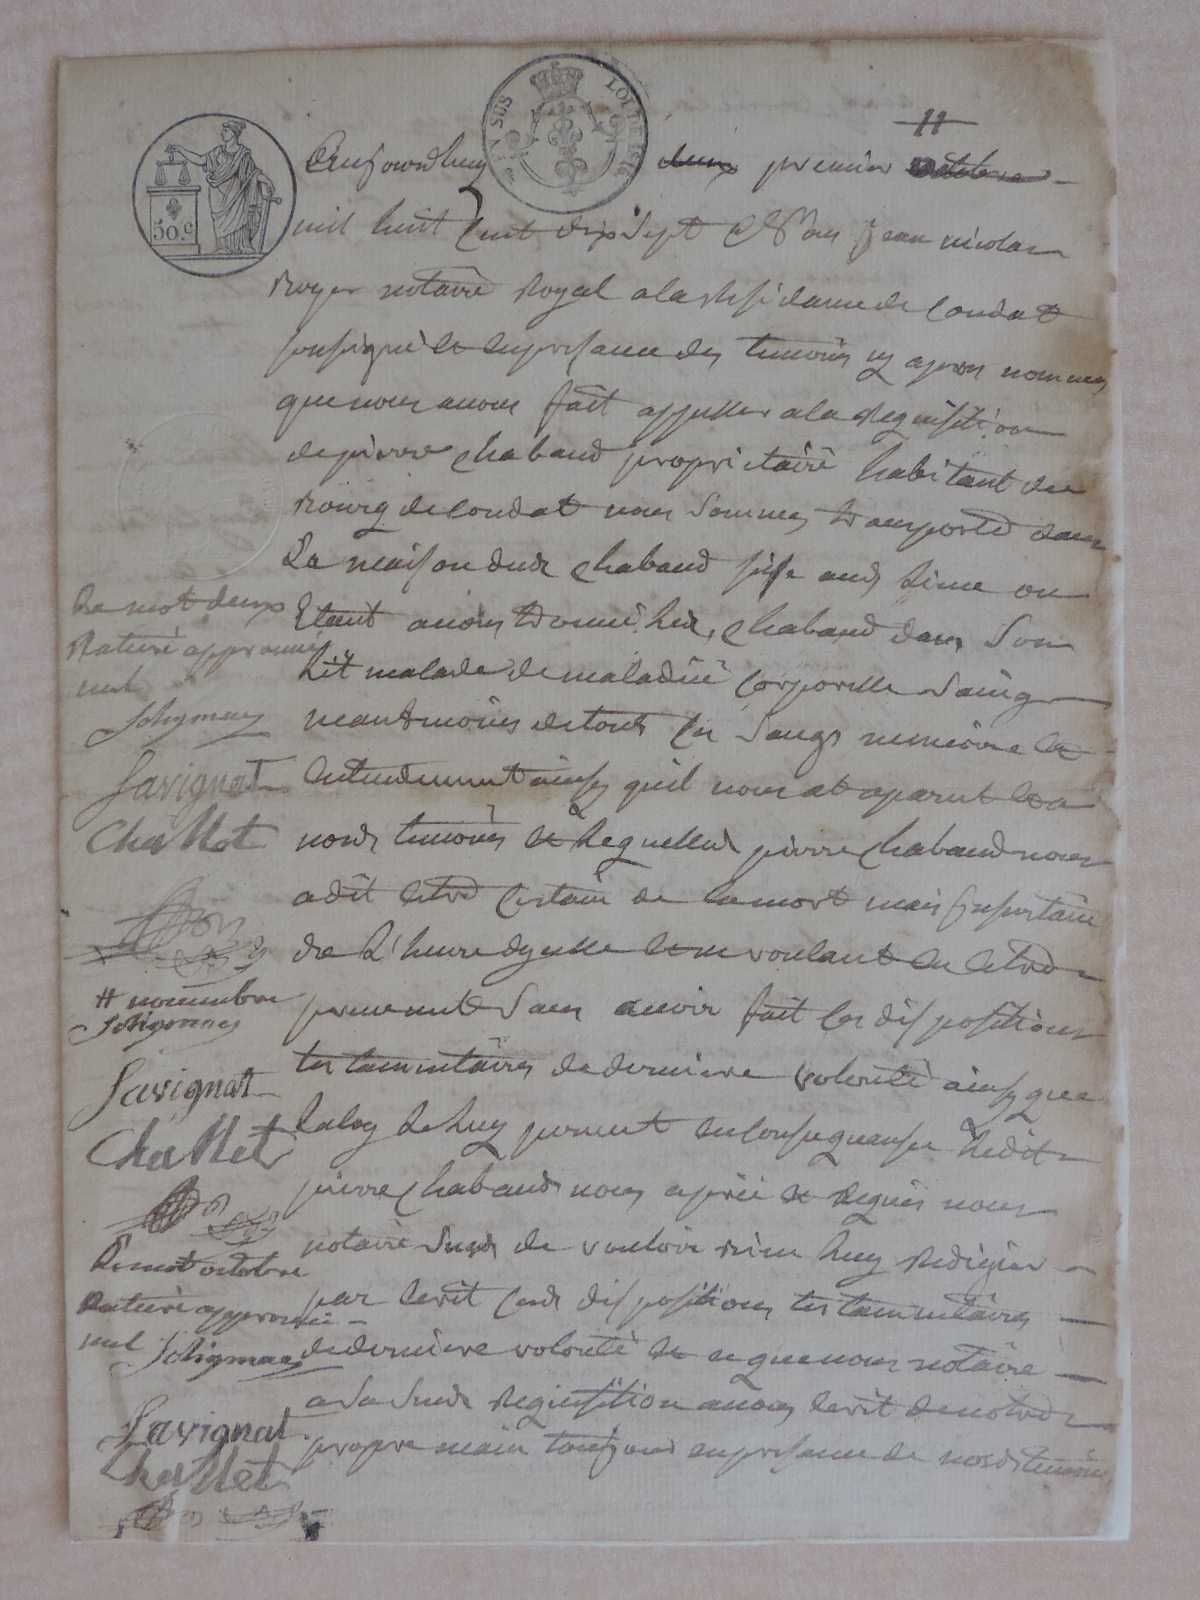 50.c
EN SUS
LOI DE 1816
#
Aujourdhuy deux premier octobre
mil huit cent dix sept Nous jean nicolas
Royer notaire Royal a la Residance de Condat
soussigné et en presance des temoins cy apres nommes
que nous avons fait appeller a la Requisition
de pierre chabaud proprietaire habitant du
Bourg de Condat nous sommes transporté dans
La maison dudt chabaud size audt Lieu ou
Etant avons trouvé Led. chabaud dans son
Lit malade de maladiie corporelle Saing
neantmoins de touts ces Sangs memoire et
entendement ainsy quil nous at aparut et a
nosdt temoins et Lequelled pierre chabaud nous
a dit Estre certain de la mort mais Insertain
de L'heure dycelle et ne voulant en Estre
prevenut Sans avoir fait ces dispositions
testamentaires de derniere volonté ainsy que
la loy Le luy permet en consequanse Ledit
pierre chabaud nous a prié et Requis nous
notaire Susdt de vouloir Bien luy Redigier
par Ecrit cesdt dispositions testamentaires
de derniere volonté et ce que nous notaire
a sa Susdt Requisition avons Ecrit de notre
propre main toujours en presance de nosdt temoins
Le mot deux
Raturé approuvé
nul
Soligmac
Savignat
Challet
# novembre
Soligmac
Savignat
Challet
Le mot octobre
Raturé approuvé
nul
Soligmac
Savignat
Challet